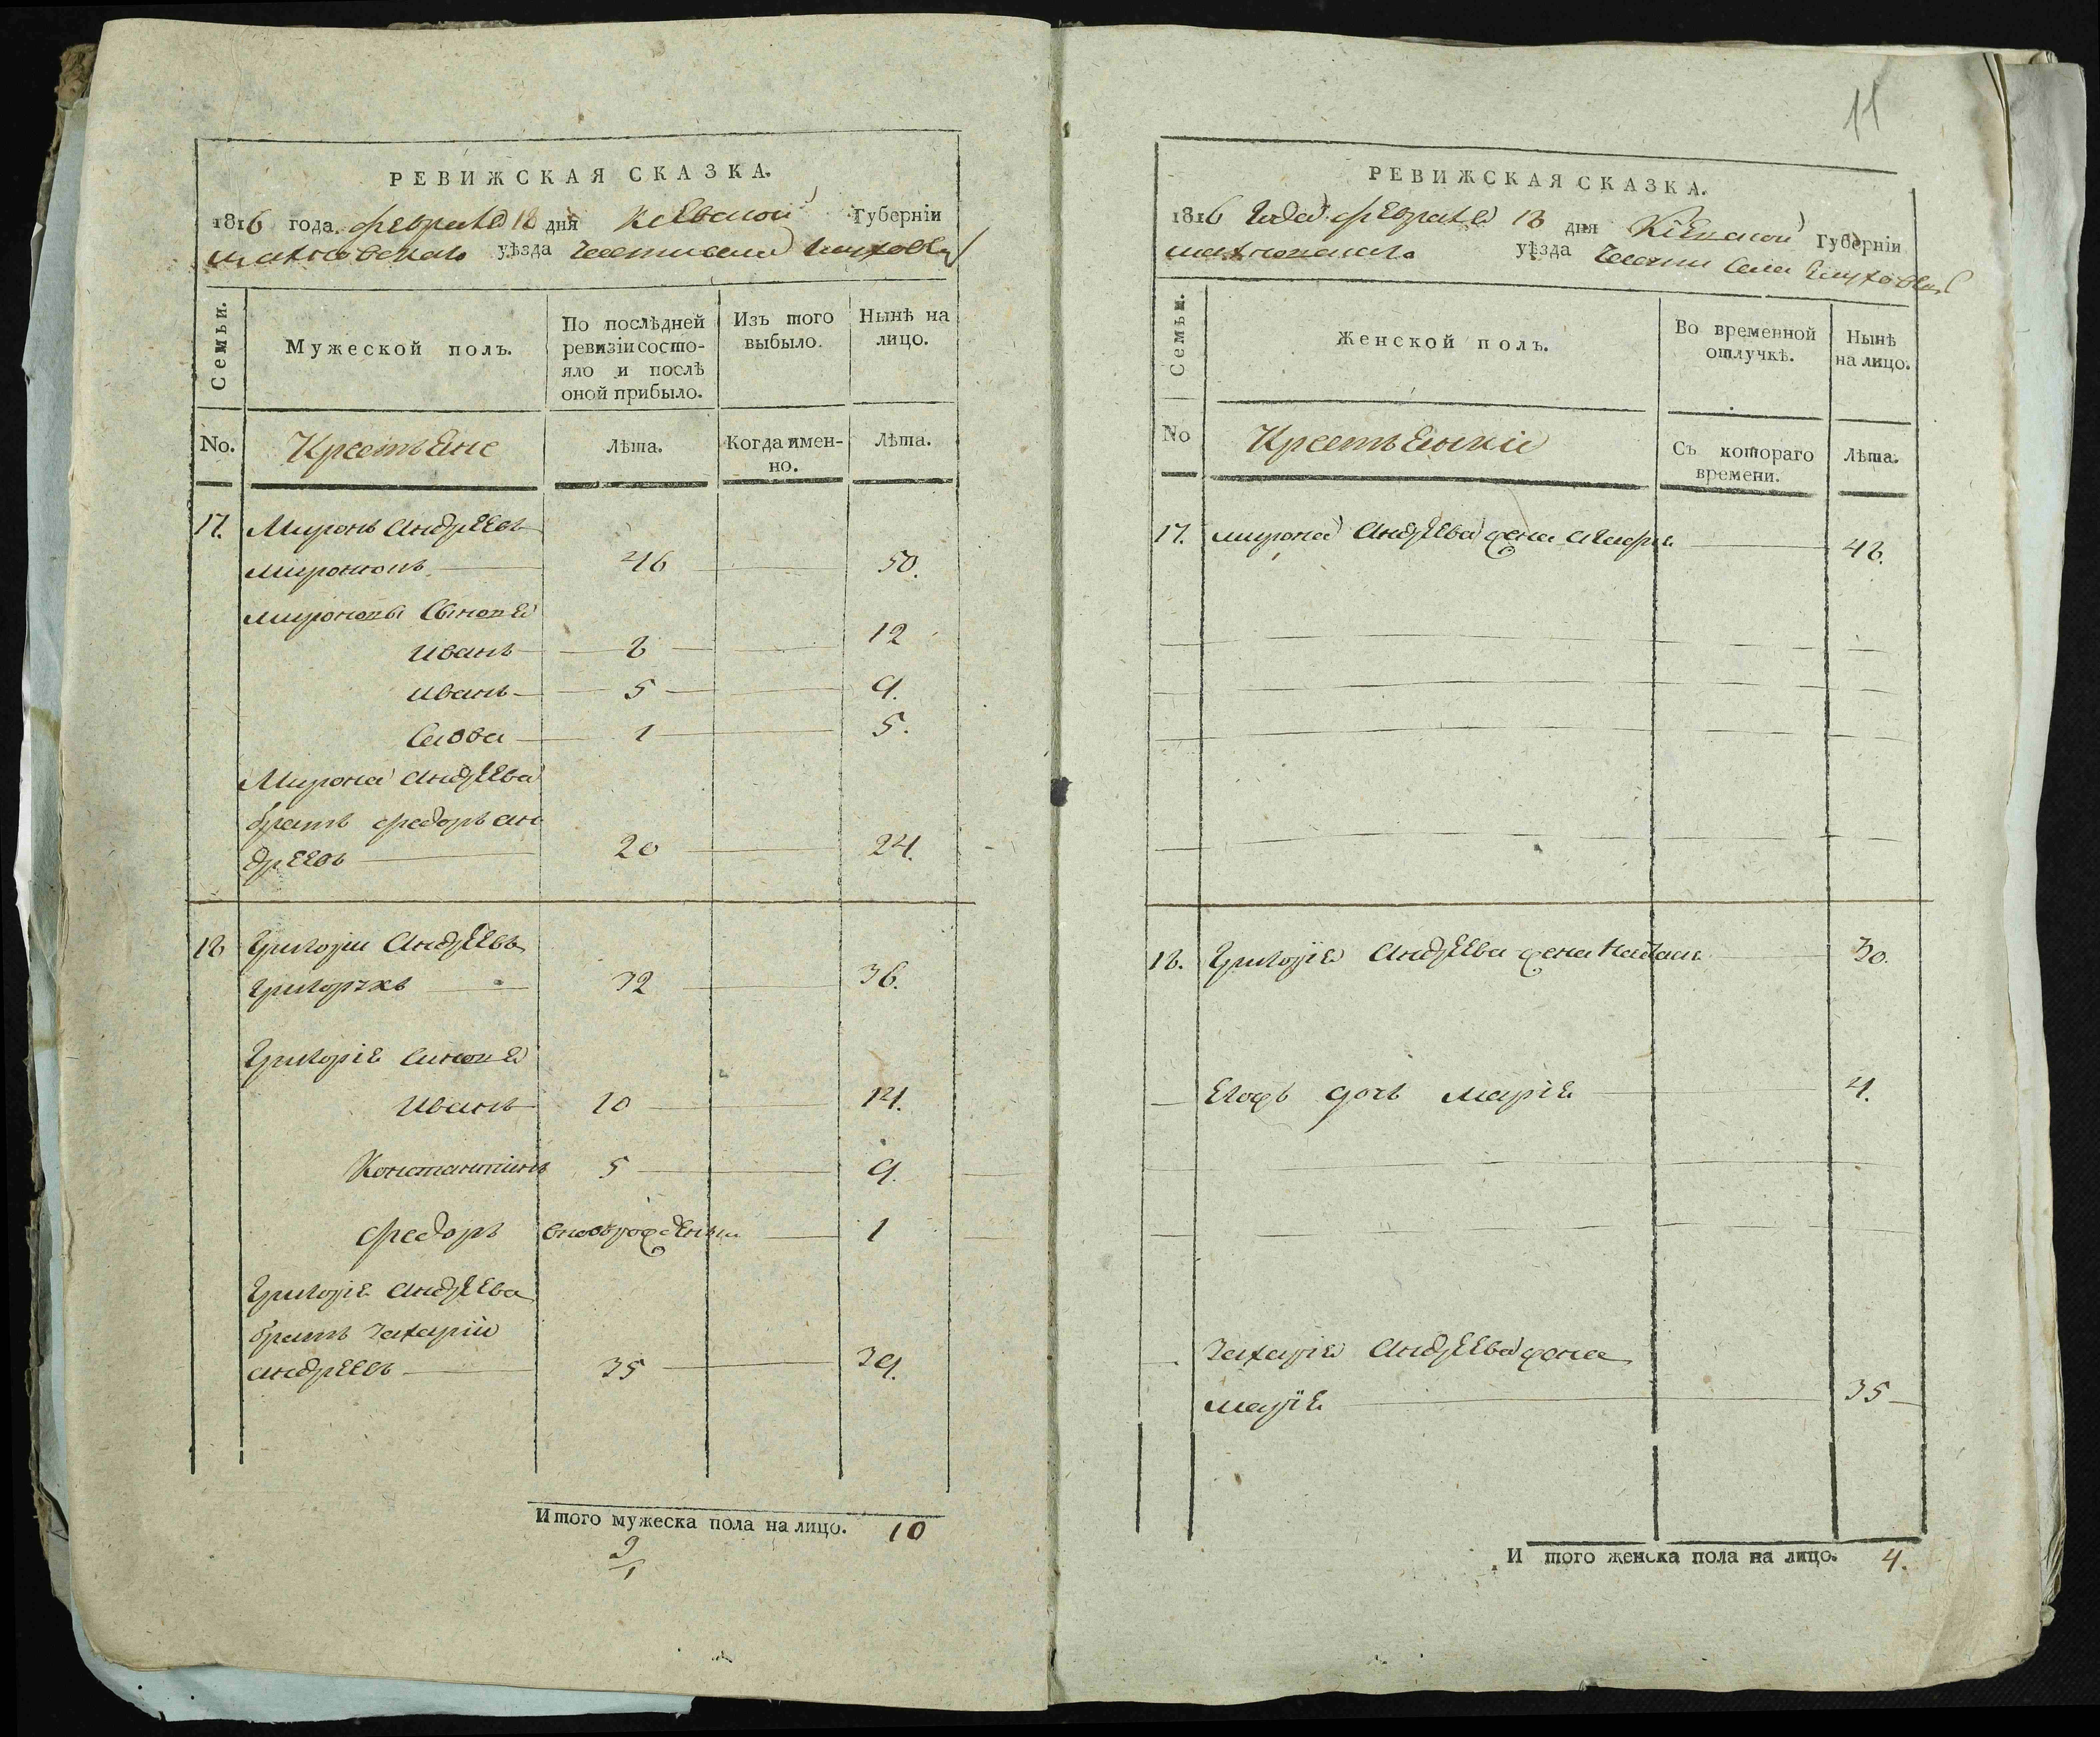 РЕВИЖСКАЯ СКАЗКА.
1816 года февраля 18 дня Киевской Губерніи
махновскаго уѣзда части села
Семьи.
Мужеской полъ.
По послѣдней ревизіи состояло и послѣ оной прибыло.
Изъ того выбыло.
Нынѣ на лицо.
No.
Крестьяне
Лѣта.
Когда имен-
но.
Лѣта.
17. Миронъ Андреевъ
миронюкъ 46 50.
мироновы Сыновя
Иванъ 8 12
иванъ 5 9.
Савва 1 5.
Мирона Андреева
братъ федоръ ан
дреевъ 20 24.
18 Григорій Андреевъ
32 36.
Григорія синовя
Иванъ 10 14.
Константинъ 5 9.
федоръ вновьрожденный 1
Григорія Андреева
братъ Захарій
андреевъ 35 39.
Итого мужеска пола на лицо. 10
9
1
11
РЕВИЖСКАЯ СКАЗКА.
1816 Года февраля 18 дня Кіевской Губерніи
махновскаго уѣзда части села
Семьи.
Женской полъ.
Во временной отлучкѣ.
Нынѣ на лицо.
No
Крестьянки
Съ котораго
времени.
Лѣта.
17. мирона Андреева жена 48.
18. Григорія Андреева жена 30.
Егожъ дочь Марія 4.
Захарія Андреева жена
марія 35
Итого женска пола на лицо. 4.